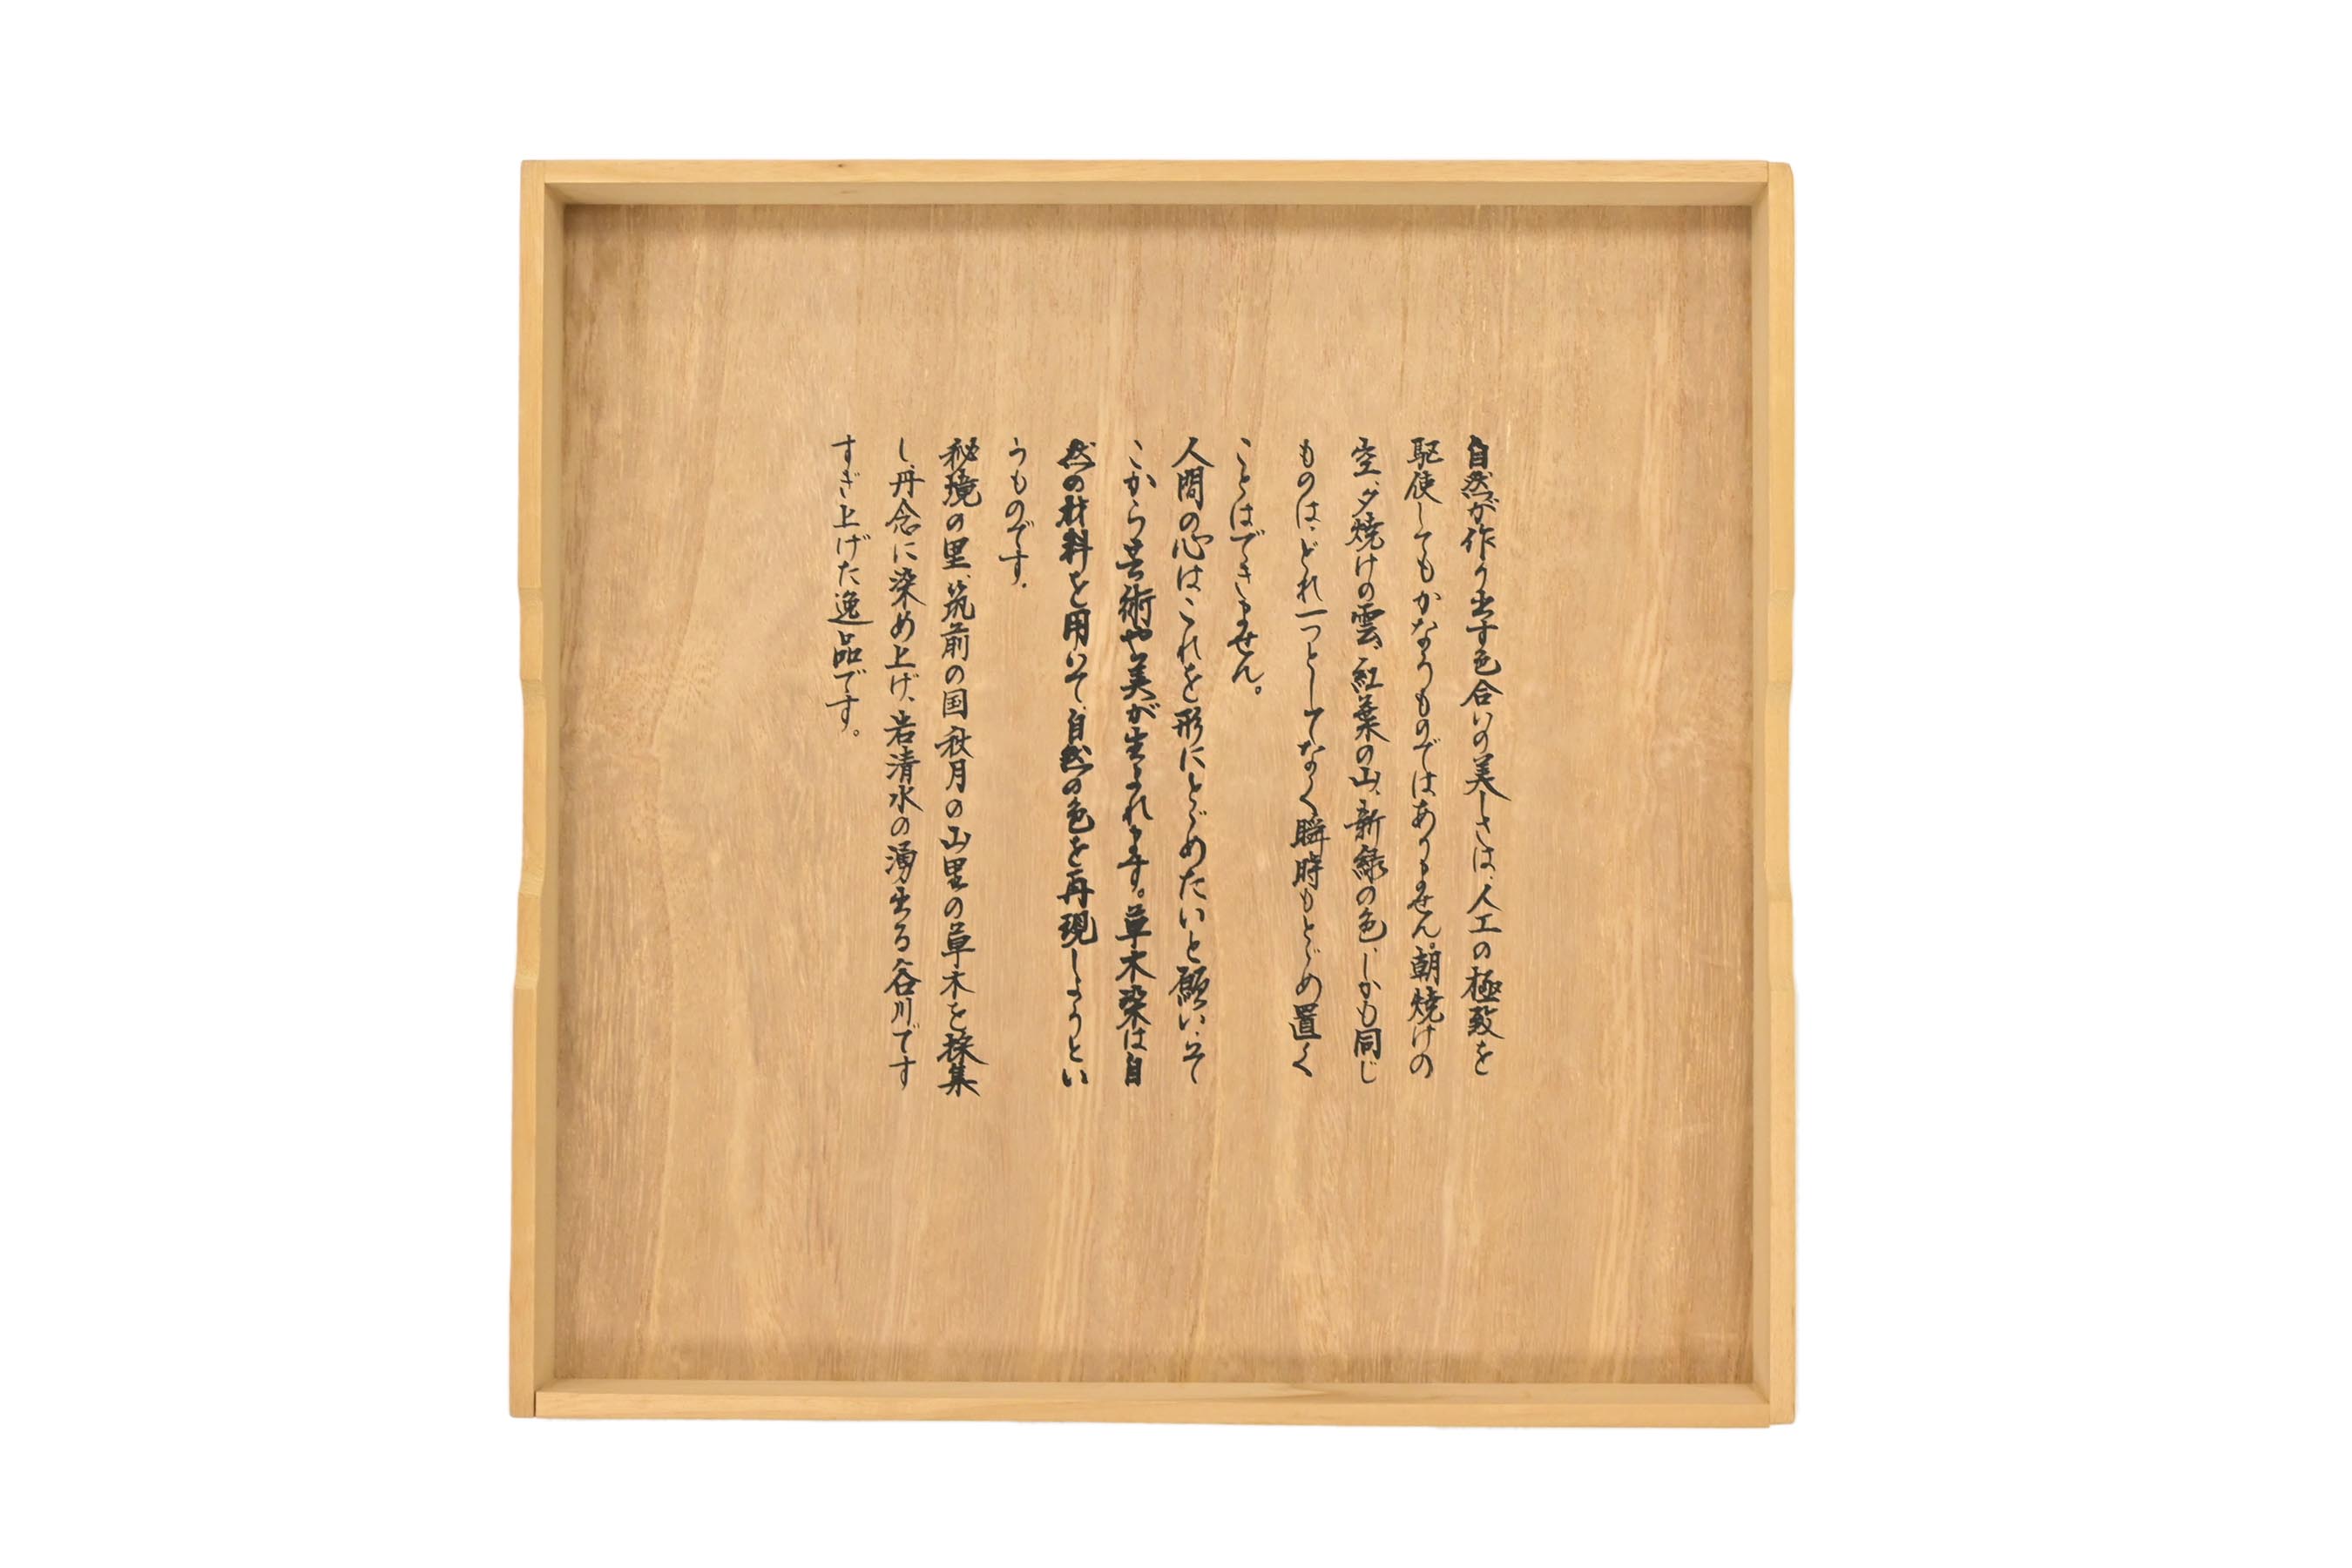 自然が作り出す色合いの美しさは、人工の極致を
駆使してもかなうものではありません。朝焼けの
空、夕焼けの雲、紅葉の山、新緑の色、しかも同じ
ものは、どれ一つとしてなく瞬時もとゞめ置く
ことはできません。
人間の心はこれを形にとゞめたいと願い、そ
こから芸術や美が生まれます。草木染は自
然の材料を用いて、自然の色を再現しようとい
うものです。
秘境の里、筑前の国秋月の山里の草木を採集
し、丹念に染め上げ、岩清水の湧出る谷川です
すぎ上げた逸品です。